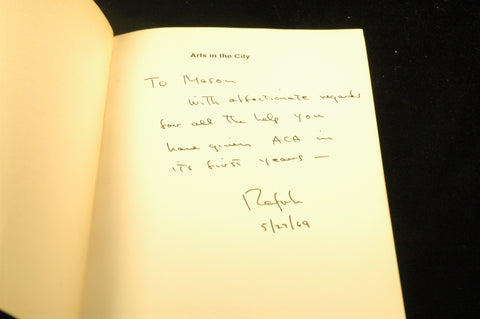 Arts in the City
To Mason
with affectionate regards
for all the help you
have given ACA in
its first years —
Ralph
5/27/69